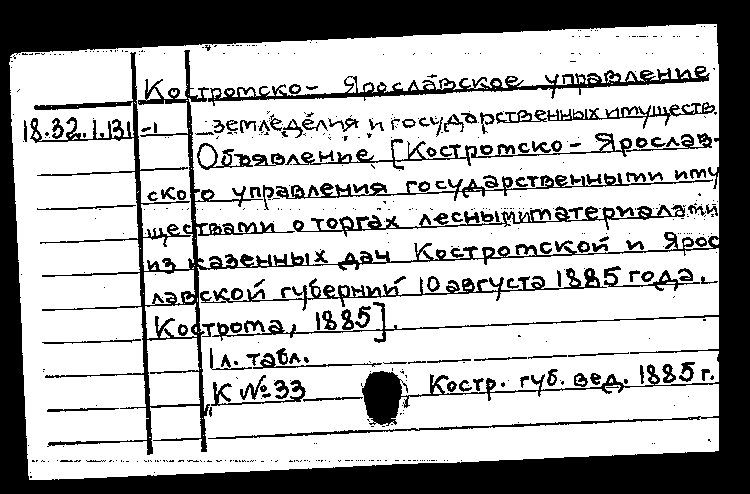 Костромско- Ярославское управление
18.32.1.131 -1 земледелия и государственных имуществ.
Объявление [Костромско - Ярослав-
ского управления государственными иму
ществами о торгах лесными материалами
из казенных дач Костромской и Ярос
лавской губерний 10 августа 1885 года.
Кострома, 1885].
1 л. табл.
"К № 33 Костр. губ. вед. 1885 г.